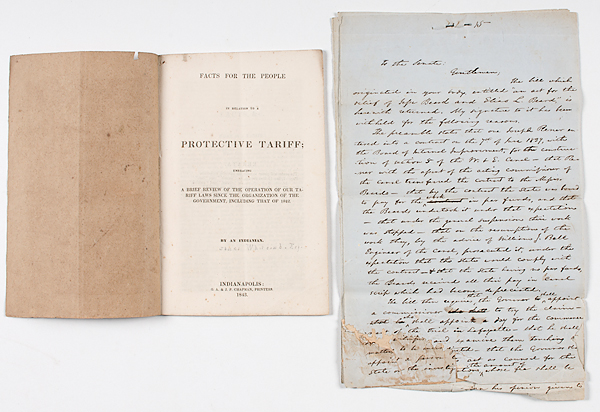 FACTS FOR THE PEOPLE
IN RELATION TO A
PROTECTIVE TARIFF;
EMBRACING
A BRIEF REVIEW OF THE OPERATION OF OUR TA-
RIFF LAWS SINCE THE ORGANIZATION OF THE
GOVERNMENT, INCLUDING THAT OF 1842
BY AN INDIANIAN.
INDIANAPOLIS:
1843.
To the Senate.
Gentlemen,
the bill which
originated in your body entitled "an act for the
relief of Jesse Beard and Elias L. Beard," is
herewith returned. My signature to it has been
withheld for the following reasons.
The preamble states that one Joseph
tered into a contract on the 7th of June 1837, with
the Board of Internal Improvement, for the construc-
tion of section 5 of the W. & E. Canal – that
ver with the assent of the acting commissioner of
the Canal transferred the contract to the
Beards – that by the contract the State was bound
to pay for the work in par funds, and that
the Beards undertook it under that expectation
– that under the general suspension their work
was stopped – that on the resumption of the
work they, by the advice of Williams J. Ball
Engineer of the Canal, prosecuted it, under the
expectation that the State would comply with
the contract – & that the State having no par funds,
the Beards received all their pay in Canal
scrip which has been depreciated.
The bill then requires the Governor to appoint
a commissioner to try the claim –
shall appoint a day for the commence
ment of the trial in Lafayette – that he shall
and examine them touching
matters to be investigated – that the Governor
appoint a person to act as counsel for the
State on the investigation, the amount of whose fee shall be
his opinion given to